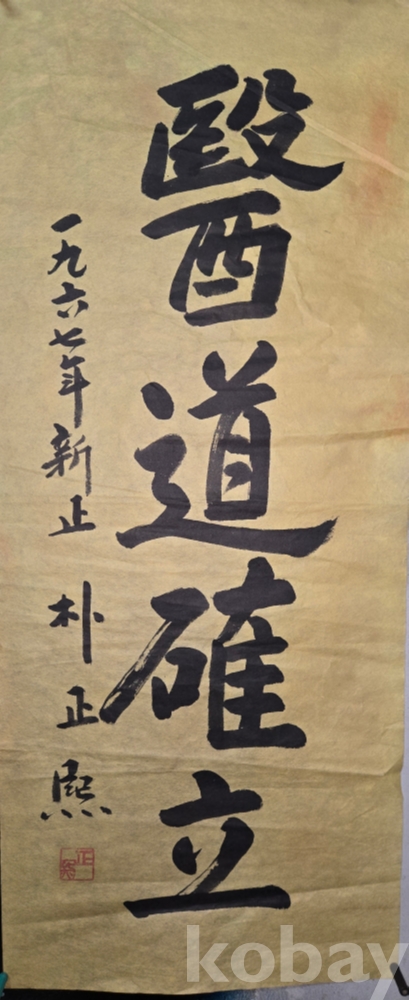 醫道確立
一九六七年 新正 朴正熙
kobay